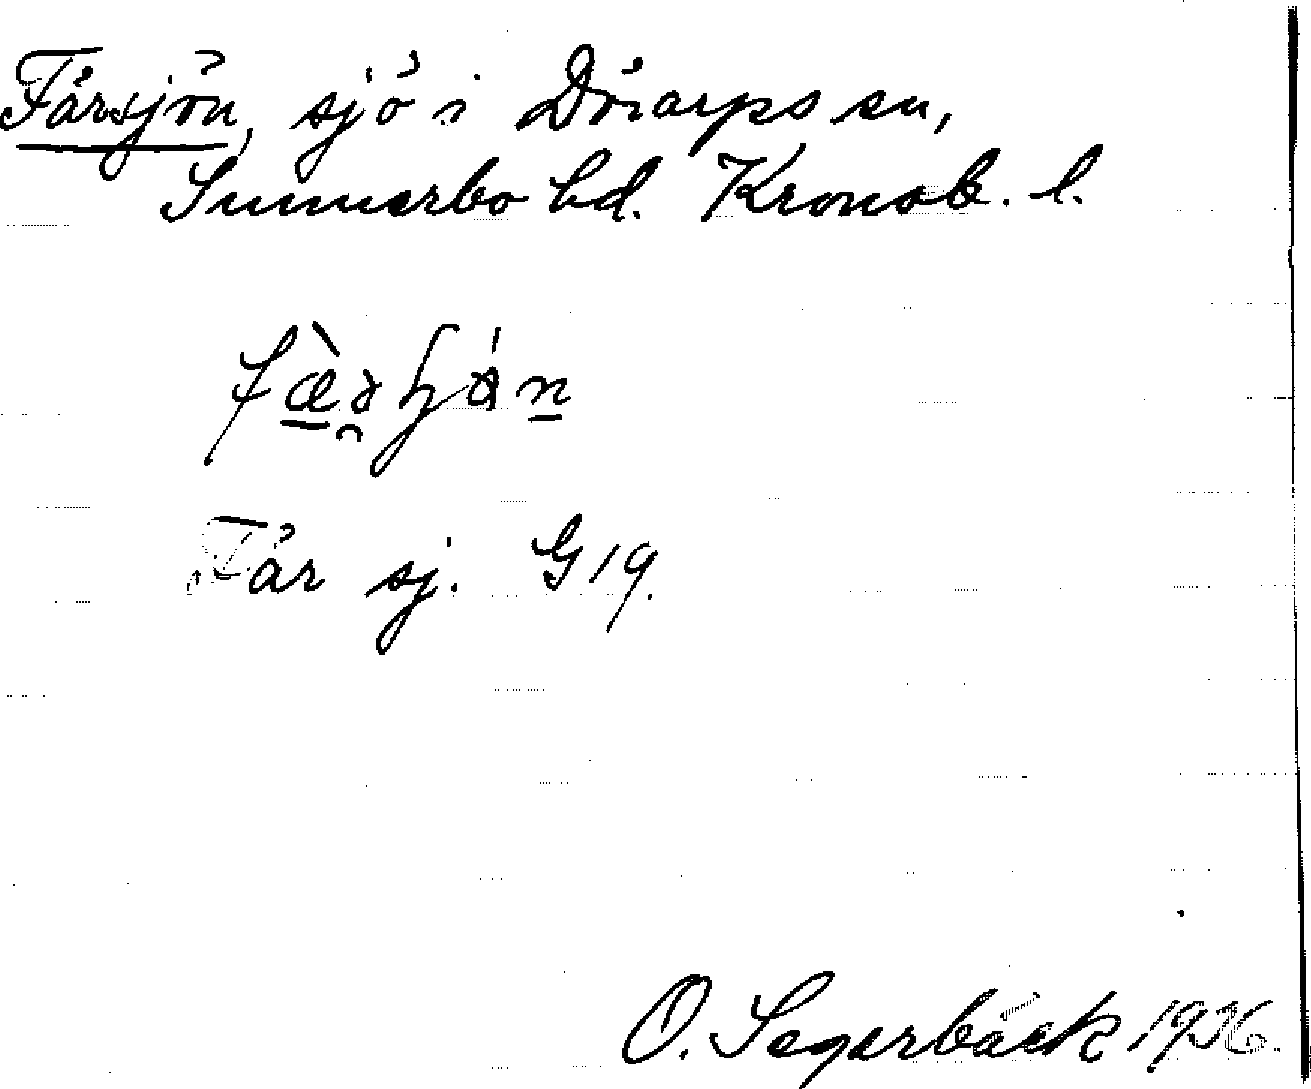 Färsjön, sjö i Dörarps sn,
Sunnerbo hd. Kronob. l.
Fär sj. G 19.
O. Segerbäck 1936.